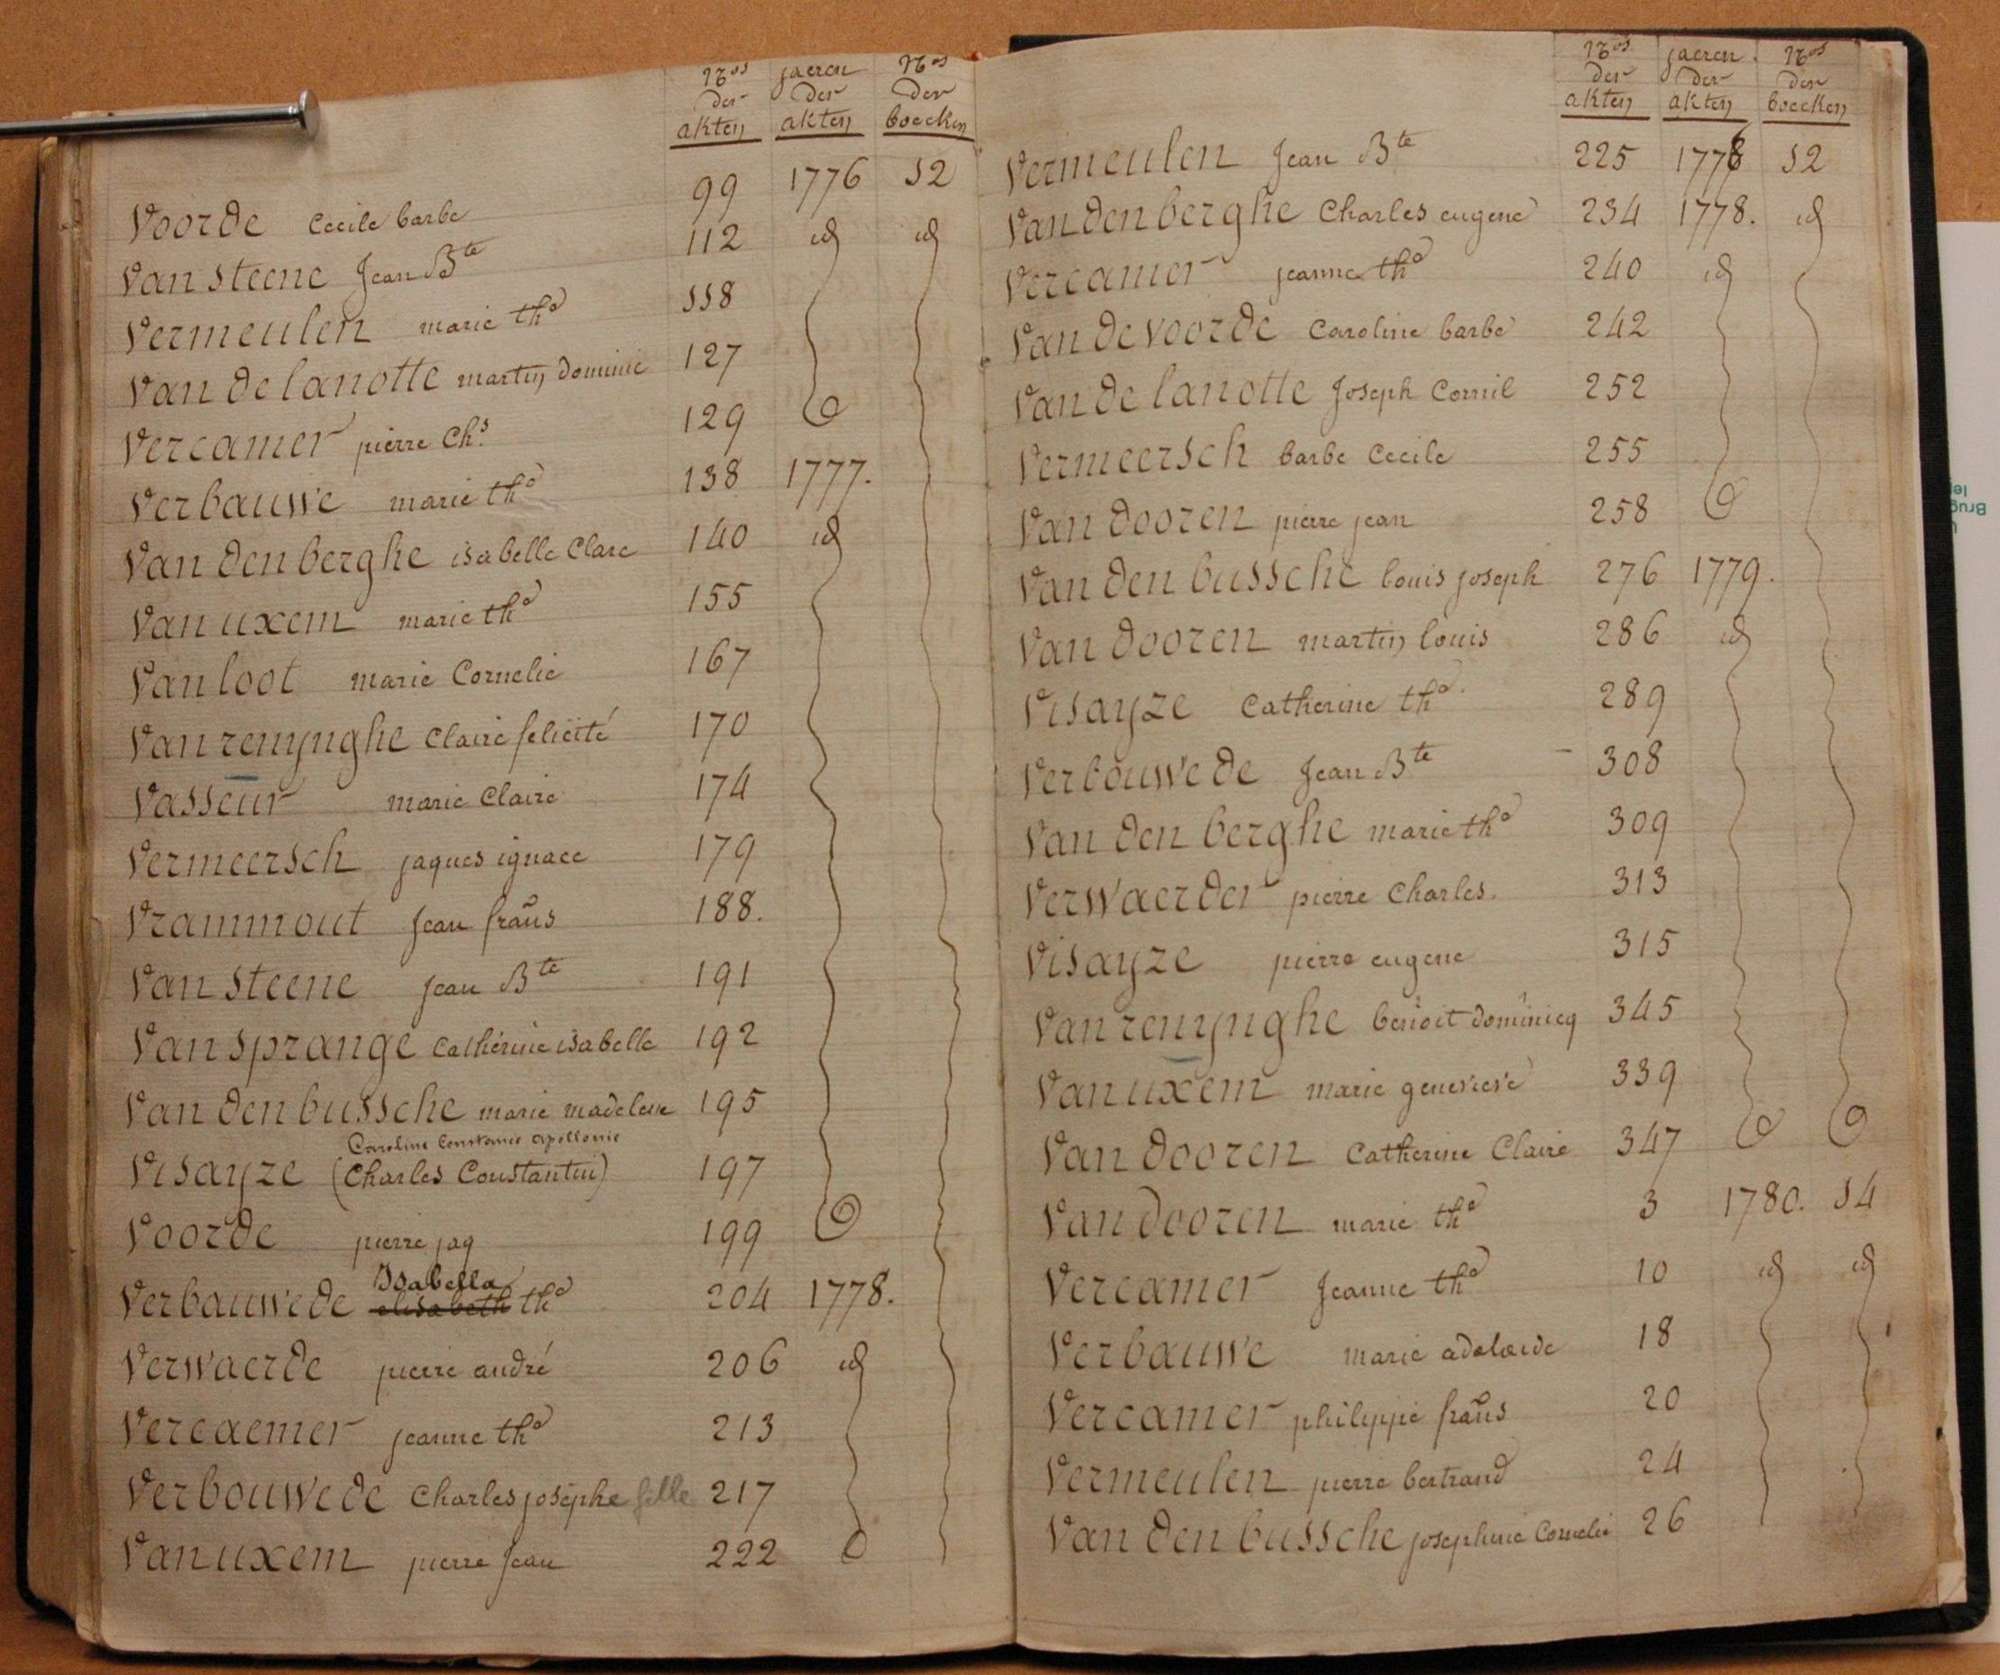 Nos der akten | jaeren der akten | Nos der boecken
Voorde Cecile barbe 99 1776 12
Van steene Jean Bte 112 id id
Vermeulen marie the 118
Van de lanotte martin dominic 127
Vercamer pierre Chs 129
Verbauwe marie the 138 1777.
Van den berghe isabelle Clare 140 id
Van uxem marie the 155
Van loot marie Cornelie 167
Van renynghe Claire felicité 170
Vasseur marie Claire 174
Vermeersch jaques ignace 179
Vrammout Jean frañs 188.
Van steene Jean Bte 191
Van sprange Catherine isabelle 192
Van den bussche marie madeleine 195
Caroline Constance apollonie
Visayze (Charles Constantin) 197
Voorde pierre jaq 199
Isabella
Verbauwede elisabeth the 204 1778.
Verwaerde pierre andré 206 id
Vercaemer jeanne the 213
Verbouwede Charles josephe fille 217
Van uxem pierre Jean 222
Nos der akten | jaeren der akten | Nos der boecken
Vermeulen Jean Bte 225 1778 12
Van den berghe Charles eugene 234 1778. id
Vercamer jeanne the 240 id
Van de voorde Caroline barbe 242
Van de lanotte Joseph Cornil 252
Vermeersch barbe Cecile 255
Van dooren pierre jean 258
Van den bussche louis joseph 276 1779.
Van dooren martin louis 286 id
Visayze Catherine the 289
Verbouwede Jean Bte 308
Van den berghe marie the 309
Verwaerder pierre Charles. 313
Visayze pierre eugene 315
Van renynghe benoit dominicq 345
Van uxem marie genevieve 339
Van dooren Catherine Claire 347
Van dooren marie the 3 1780. 14
Vercamer Jeanne the 10 id id
Verbauwe marie adelaide 18
Vercamer philippe frañs 20
Vermeulen pierre bertrand 24
Van den bussche josephine Cornelie 26